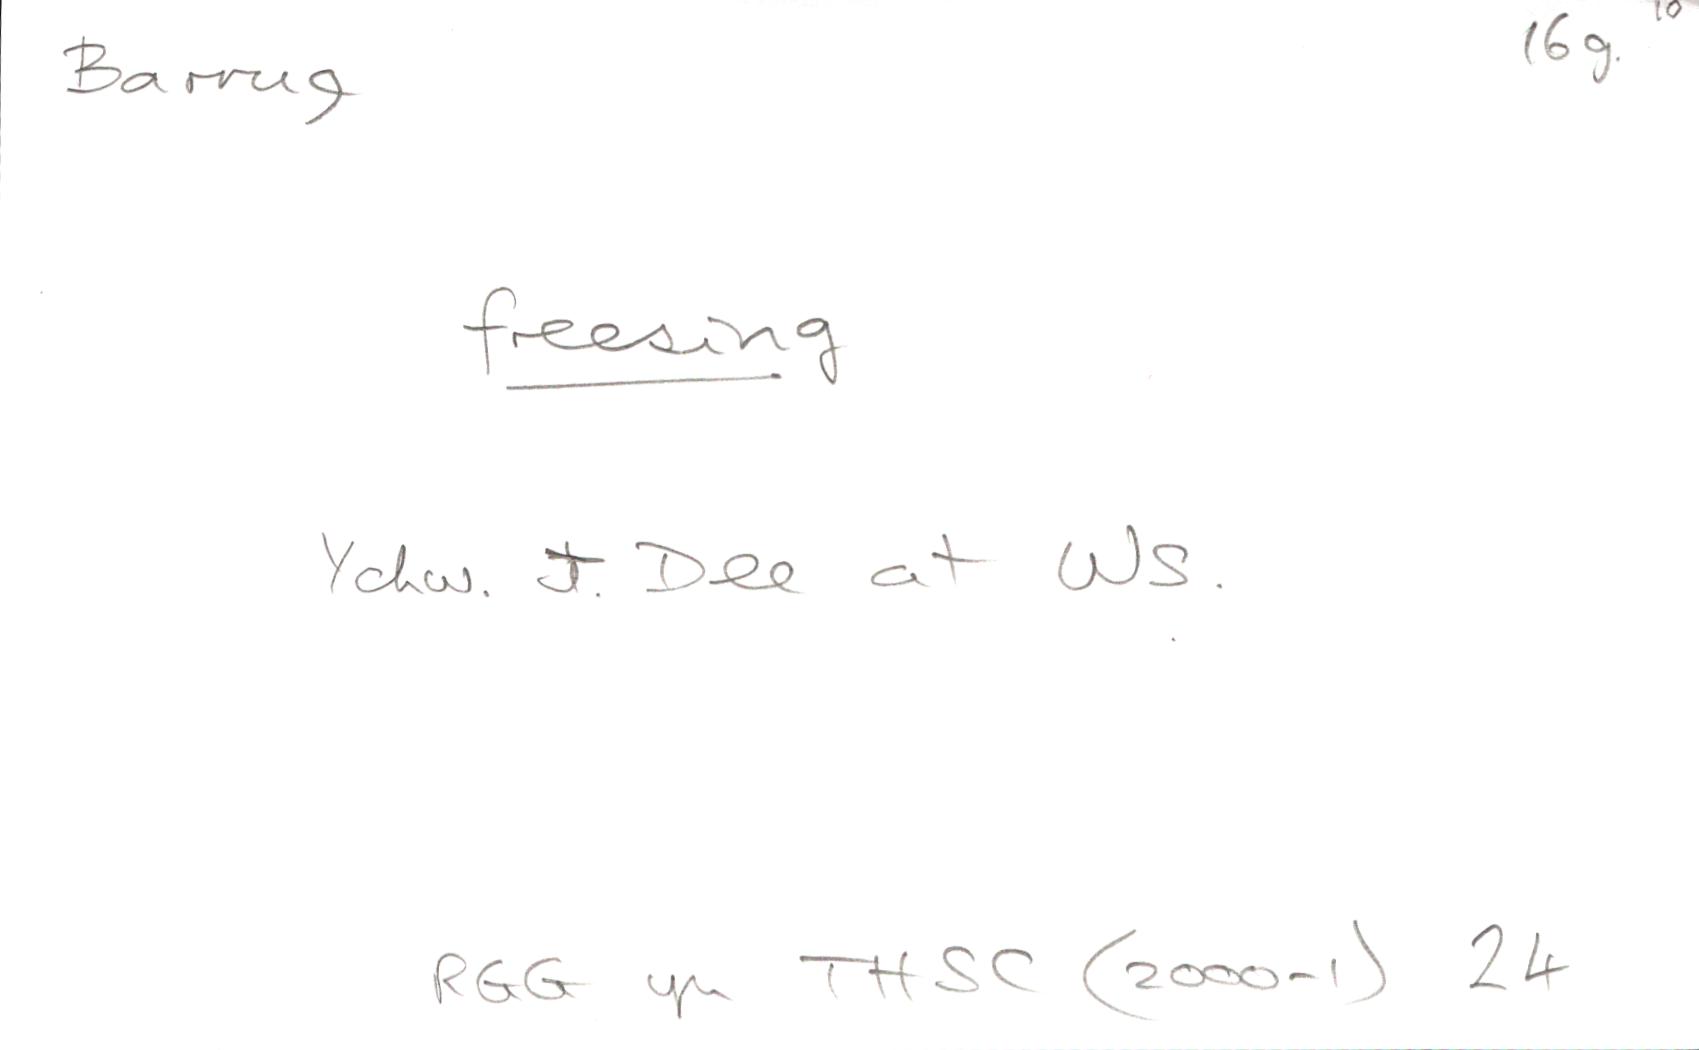 Barrug 16g. 10
freesing
Ychw. J. Dee at WS.
RGG yn THSC (2000-1) 24